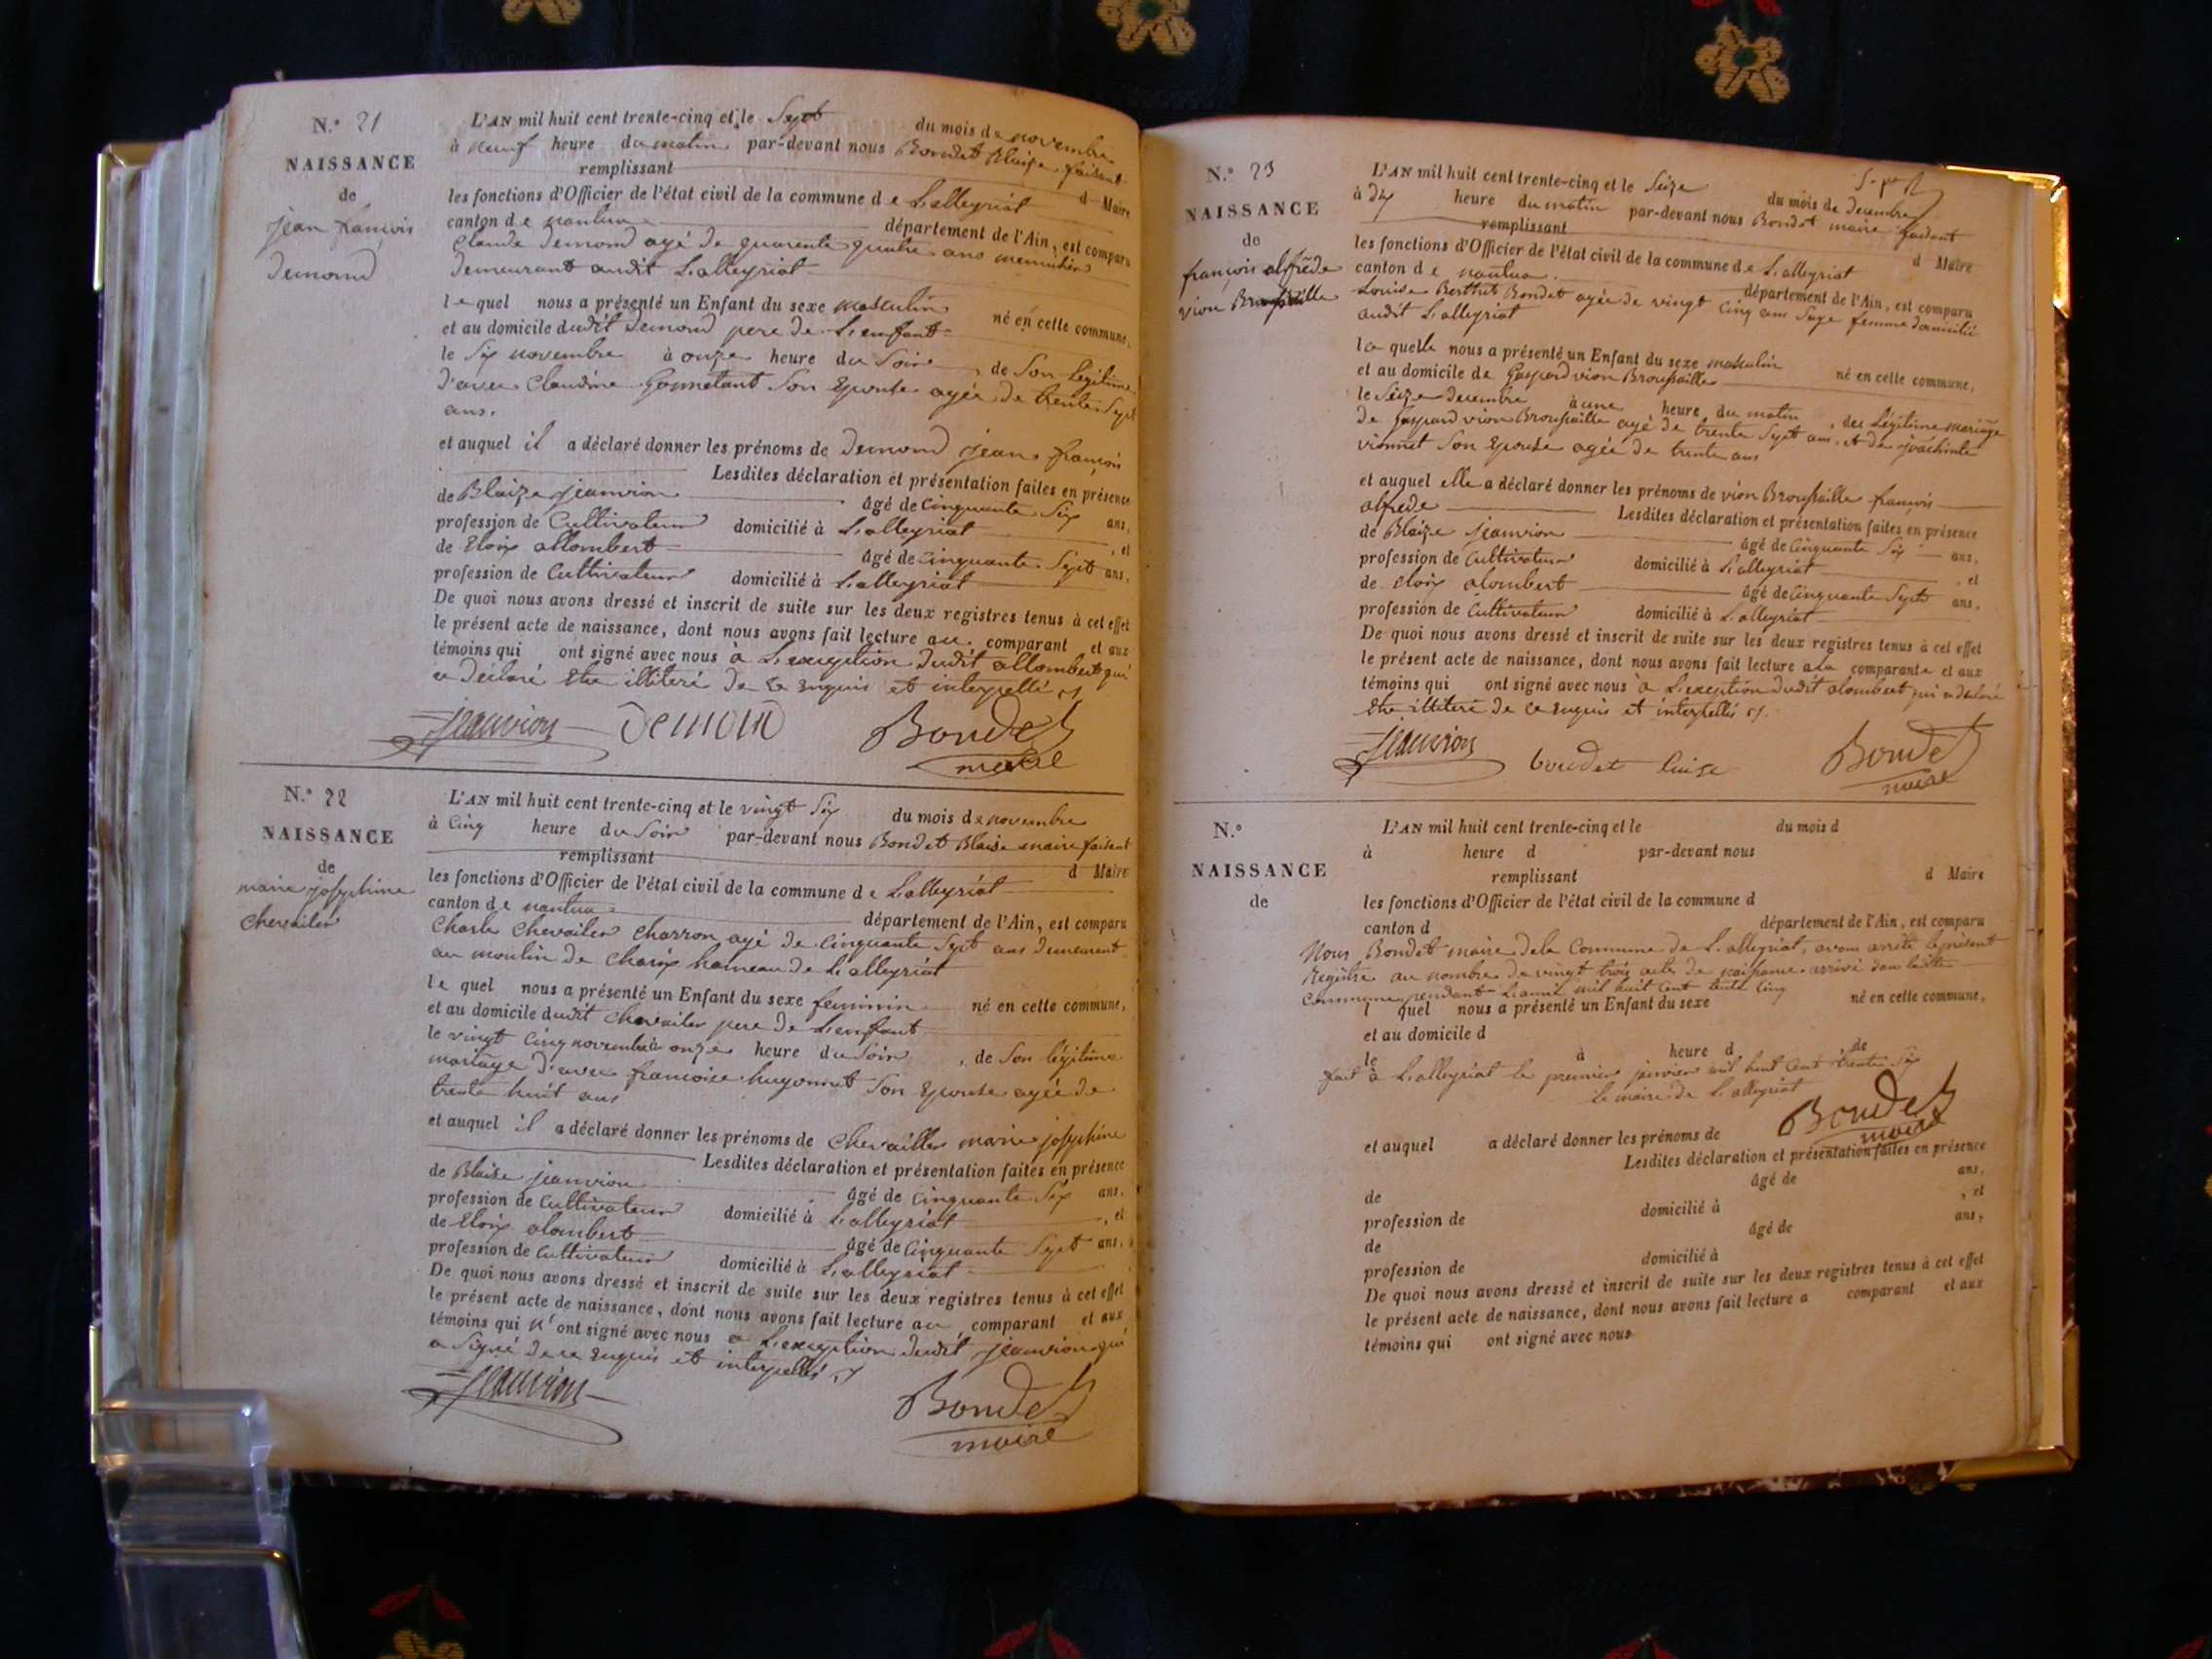 N.° 21
NAISSANCE
de
jean françois
Demond
L'AN mil huit cent trente-cinq et le Sept du mois de novembre
à neuf heure du matin par-devant nous Bondet Blaise faisant
remplissant d Maire
les fonctions d'Officier de l'état civil de la commune de L'alleyriat
canton de nantua département de l'Ain, est comparu
Claude Demond agé de quarente quatre ans menuisier
demeurant audit L'alleyriat
lequel nous a présenté un Enfant du sexe masculin né en cette commune,
et au domicile dudit Demond pere de L'enfant
le Six novembre à onze heure du Soir, de Son legitime
d'avec Claudine Son Epouse agée de trente Sept
ans.
et auquel il a déclaré donner les prénoms de Demond jean françois
Lesdites déclaration et présentation faites en présence
de Blaize jeanvion âgé de Cinquante Six ans,
profession de Cultivateur domicilié à L'alleyriat, et
de Eloix allombert âgé de Cinquante Sept ans,
profession de Cultivateur domicilié à L'alleyriat
De quoi nous avons dressé et inscrit de suite sur les deux registres tenus à cet effet
le présent acte de naissance, dont nous avons fait lecture au comparant et aux
témoins qui ont signé avec nous à L'exception dudit allombert qui
a Déclaré Etre illiteré de ce Enquis et interpellé
jeanvion Demond Bondet
maire
N.° 22
NAISSANCE
de
marie josephine
Chevailer
L'AN mil huit cent trente-cinq et le vingt Six du mois de novembre
à Cinq heure du Soir par-devant nous Bondet Blaise maire faisant
remplissant d Maire
les fonctions d'Officier de l'état civil de la commune de L'alleyriat
canton de nantua département de l'Ain, est comparu
Charle Chevailer Charron agé de Cinquante Sept ans demeurant
au moulin de Charix hameau de L'alleyriat
lequel nous a présenté un Enfant du sexe feminin né en cette commune,
et au domicile dudit Chevailer pere de L'enfant
le vingt Cinq novembre à onze heure du Soir, de Son légitime
mariage d'avec francoise hugonnet Son Epouse agée de
trente huit ans
et auquel il a déclaré donner les prénoms de Chevailler marie josephine
Lesdites déclaration et présentation faites en présence
de Blaise jeanvion âgé de Cinquante Six ans,
profession de Cultivateur domicilié à L'alleyriat, et
de Eloix alombert âgé de Cinquante Sept ans,
profession de Cultivateur domicilié à L'alleyriat
De quoi nous avons dressé et inscrit de suite sur les deux registres tenus à cet effet
le présent acte de naissance, dont nous avons fait lecture au comparant et aux
témoins qui n'ont signé avec nous a L'exception dudit jeanvion qui
a Signé de ce Enquis et interpellés
jeanvion Bondet
maire
N.° 23
NAISSANCE
de
françois alfrede
vion
L'AN mil huit cent trente-cinq et le Seize du mois de decembre
à dix heure du matin par-devant nous Bondet maire faisant
remplissant d Maire
les fonctions d'Officier de l'état civil de la commune de L'alleyriat
canton de nantua département de l'Ain, est comparu
Louise Berthet Bondet agée de vingt Cinq ans Sage femme domicilié
audit L'alleyriat
laquelle nous a présenté un Enfant du sexe masculin né en cette commune,
et au domicile de Gaspard vion Broussaille
le Seize decembre à une heure du matin, du Légitime mariage
de Gaspard vion Broussaille agé de trente Sept ans, et de joachinte
vionnet Son Epouse agée de trente ans
et auquel elle a déclaré donner les prénoms de vion Broussaille françois
alfrede Lesdites déclaration et présentation faites en présence
de Blaize jeanvion âgé de Cinquante Six ans,
profession de Cultivateur domicilié à L'alleyriat, et
de Eloix alombert âgé de Cinquante Sept ans,
profession de Cultivateur domicilié à L'alleyriat
De quoi nous avons dressé et inscrit de suite sur les deux registres tenus à cet effet
le présent acte de naissance, dont nous avons fait lecture a la comparante et aux
témoins qui ont signé avec nous à L'exception dudit alombert qui a déclaré
Etre illiteré de ce Enquis et interpellés
jeanvion bondet luise Bondet
maire
N.°
NAISSANCE
de
L'AN mil huit cent trente-cinq et le du mois d
à heure d par-devant nous
remplissant d Maire
les fonctions d'Officier de l'état civil de la commune d
canton d département de l'Ain, est comparu
Nous Bondet maire de la Commune de L'alleyriat, avons arrêté le présent
Registre au nombre de vingt trois actes de naissance arrivé dans la
Commune pendant L'année mil huit Cent trente Cinq
l quel nous a présenté un Enfant du sexe né en cette commune,
et au domicile d
le à heure d , de
fait à L'alleyriat le premier janvier mil huit Cent trente Six
Le maire de L'alleyriat
Bondet
maire
et auquel a déclaré donner les prénoms de
Lesdites déclaration et présentation faites en présence
de âgé de ans,
profession de domicilié à , et
de âgé de ans,
profession de domicilié à
De quoi nous avons dressé et inscrit de suite sur les deux registres tenus à cet effet
le présent acte de naissance, dont nous avons fait lecture a comparant et aux
témoins qui ont signé avec nous